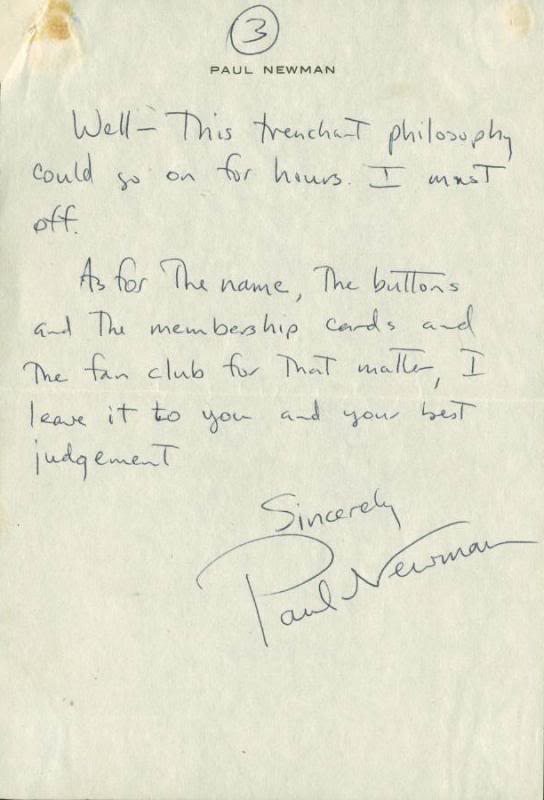 3
PAUL NEWMAN
Well – This trenchant philosophy
could go on for hours. I must
off.
As for The name, The buttons
and The membership cards and
The fan club for That matter, I
leave it to you and your best
judgement
Sincerely
Paul Newman